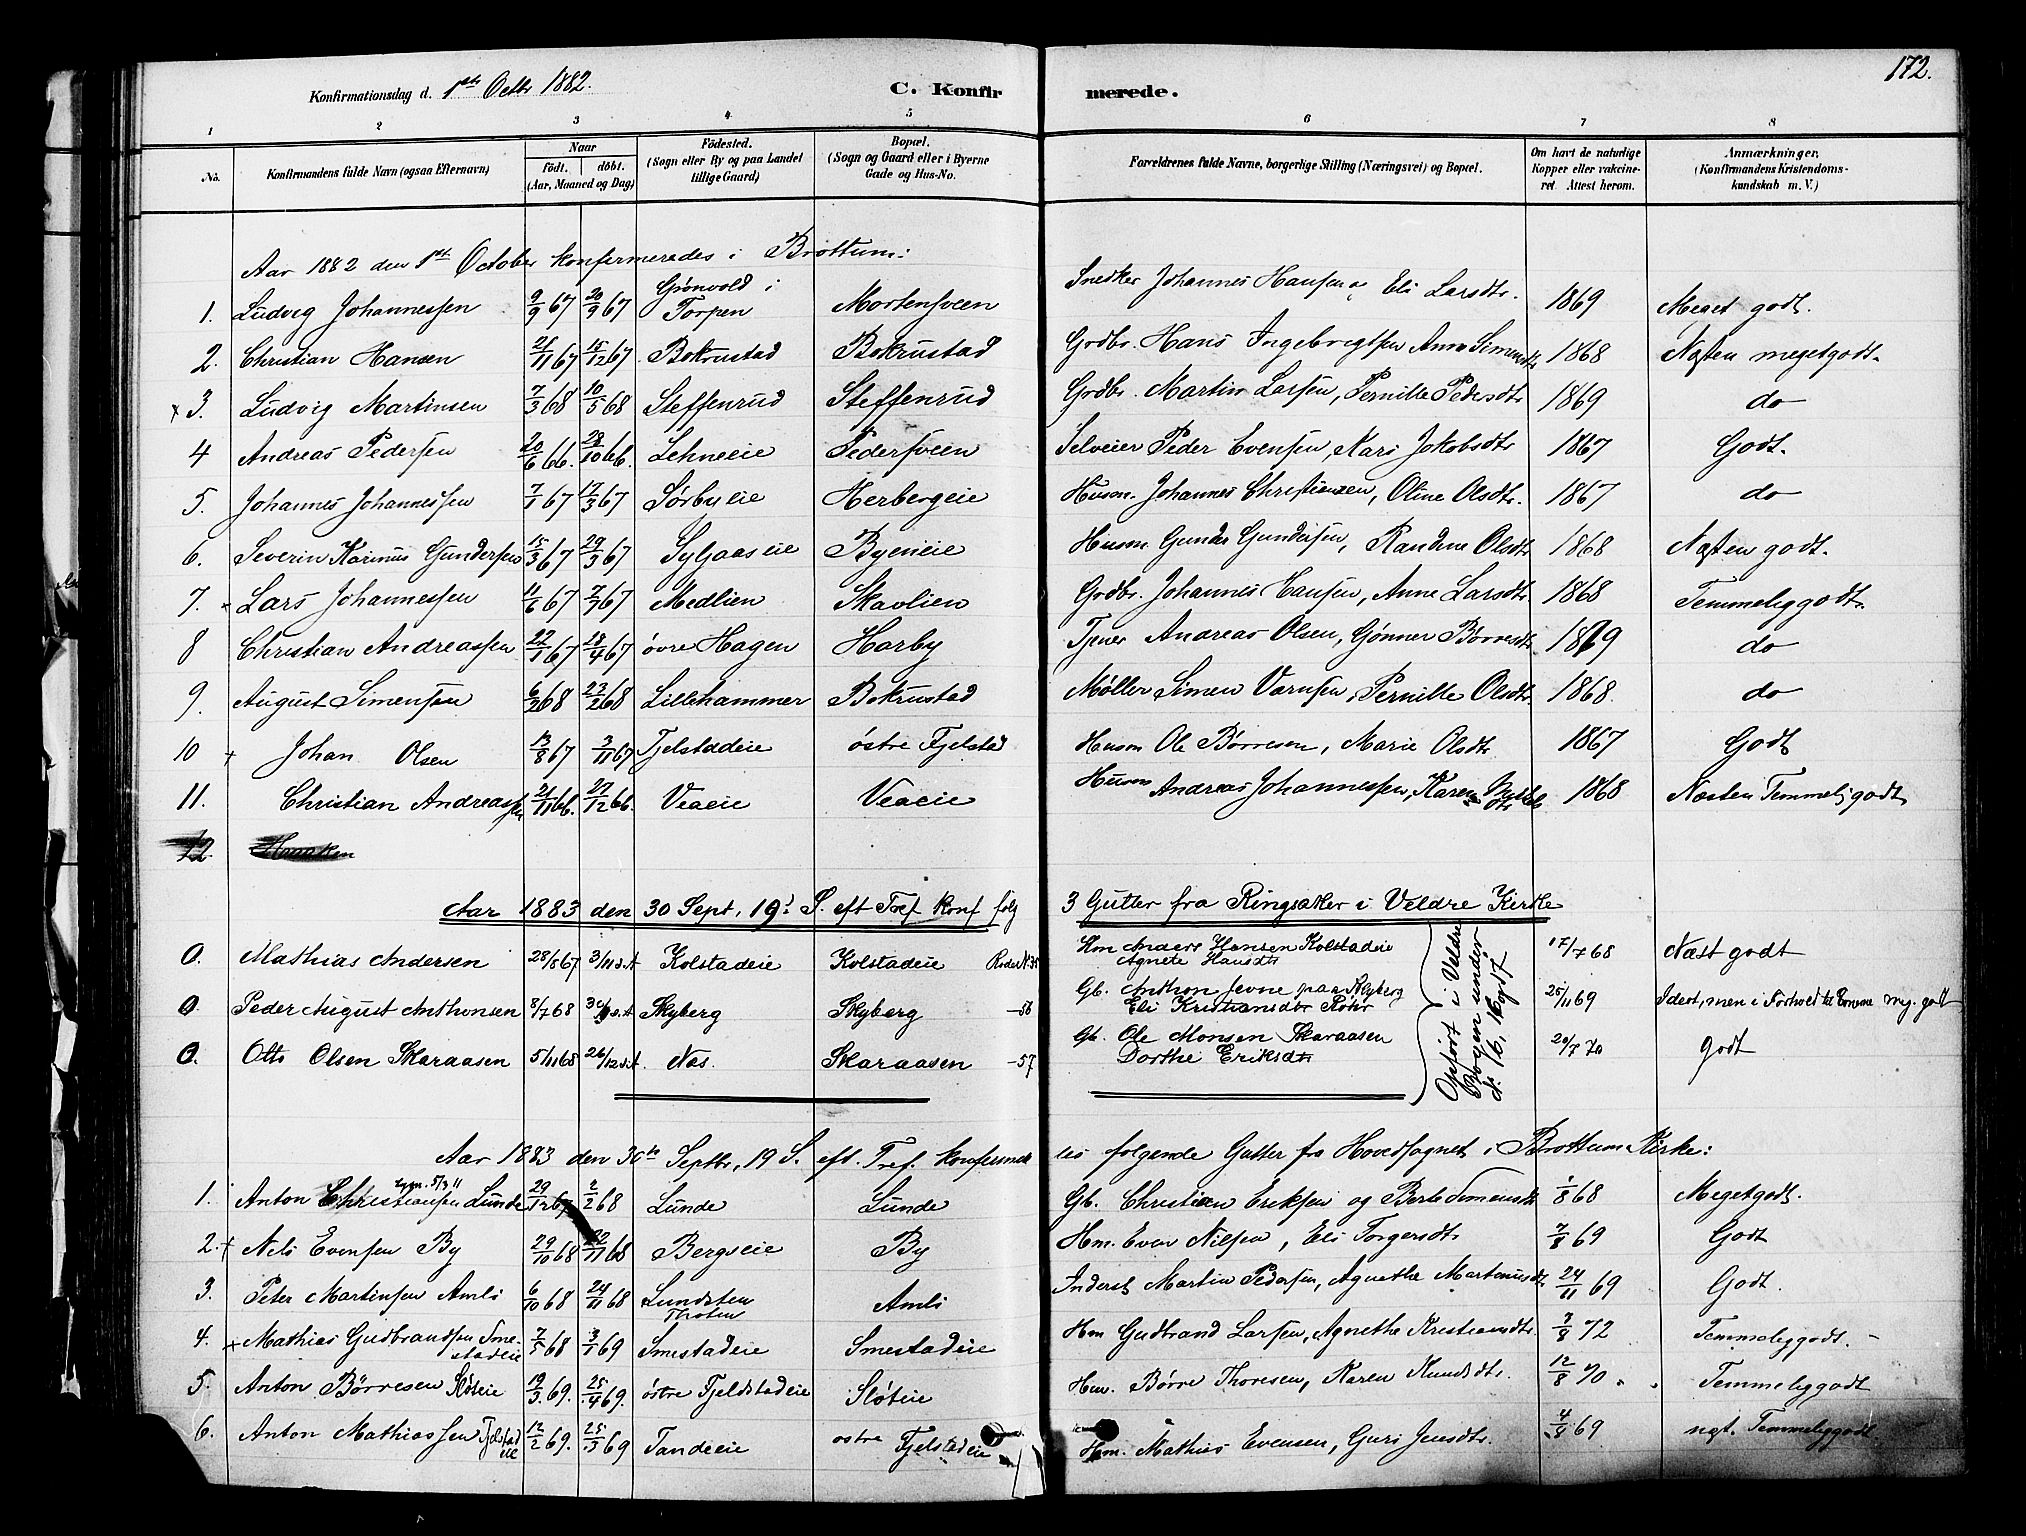 172.
Konfirmationsdag d. 1ste Octbr 1882. C. Konfirmerede.
1 2 3 4 5 6 7 8
No. Konfirmandens fulde Navn (ogsaa Efternavn) Naar födt. döbt. (Aar, Maaned og Dag) Födested. (Sogn eller By og paa Landet tillige Gaard) Bopæl. (Sogn og Gaard eller i Byerne Gade og Hus-No. Forældrenes fulde Navne, borgerlige Stilling (Næringsvei) og Bopæl. Om havt de naturlige Kopper eller vakcineret. Attest herom. Anmærkninger, (Konfirmandens Kristendomskundskab m. V.)
Aar 1882 den 1ste October konfirmeredes i Brøttum:
1. Ludvig Johannessen 9/9 67 20/9 67 Grönvold i Torpen Mortensveen Snedker Johannes Hansen og Eli Larsdtr. 1869 Meget godt.
2. Christian Hansen 21/11 67 15/12 67 Bokrustad Bokrustad Grdbr. Hans Ingebrigtsen Anne Simensdtr 1868 Næsten megetgodt.
x 3. Ludvig Martinsen 7/3 68 10/5 68 Steffenrud Steffenrud Grdbr. Martin Larsen, Pernille Pedersdtr 1869 do
4 Andreas Pedersen 20/6 66. 28/10 66. Lehneeie Pedersveen Selveier Peder Evensen, Kari Jakobsdtr 1867 Godt.
5. Johannes Johannessen 7/1 67 17/3 67 Sørbyeie Herbergeie Husm. Johannes Christiansen, Oline Olsdtr. 1867 do
6. Severin Karinus Gundersen 15/3 67 29/3 67 Syljaaseie Byeneie Husm Gunder Gundersen, Randine Olsdtr 1868 Næsten godt.
7. x Lars Johannessen 11/6 67 7/7 67 Medlien Skavlien Grdbr. Johannes Hansen, Anne Larsdtr. 1868 Temmeliggodt.
8 Christian Andreassen 22/1 67 28/4 67 övre Hagen Harby Tjener Andreas Olsen, Gønner Børresdtr 1869 do
9. August Simensen 6/2 68 23/2 68 Lillehammer Bokrustad Møller Simen Varnsen, Pernille Olsdtr. 1868. do
10 + Johan Olsen 13/8 67 3/11 67 Fjelstadeie östre Fjelstad Husm Ole Børresen, Marie Olsdtr 1867 Godt
11. Christian Andreassen 21/11 66. 27/12 66. Veaeie Veaeie Husm Andreas Johannessen, Karen 1868 Næsten Temmeligodt
12
Aar 1883 den 30 Sept. 19s S. eft Tref konf følg 3 Gutter fra Ringsaker i Veldre Kirke
O. Mathias Andersen 28/8 67 3/11 s.A Kolstadeie Kolstadeie Rode N 35 Hm Anders Hansen Kolstadeie Agnete Hansdtr 17/7 68 Næst godt
O. Peder August Anthonsen 8/7 68 30/9 s.A Skyberg Skyberg — 56 Gb. Anthon Jevne paa Skyberg Eli Kristiansdtr Röhr 25/11 69 Idest, men i Forhold til Evnerne mg. godt
O. Otto Olsen Skaraasen 5/11 68 26/12 s.A. Næs Skaraasen — 57 Gb. Ole Monsen Skaraasen Dorthe Eriksdtr 20/7 70 godt
Opført i Veldre Bogen under
Aar 1883 den 30te Septbr, 19 S. eft. Tref. konfirmeredes følgende Gutter fra Hovedsognet i Brøttum Kirke:
1. Anton Christiansen Lunde 29/12 67 2/2 68 Lunde Lunde Gb. Christian Eriksen og Berte Simensdtr 1/8 68 Megetgodt.
2. + Nels Evensen By 29/10 68 22/11 68 Bergseie By Hm. Even Nilsen, Eli Torgersdtr 7/8 69 Godt
3. Peter Martinsen Amli 6/10 68 24/11 68 Lundsten Thoten Amli Inderst Martin Pedersen, Agnethe Martinusdtr 24/11 69 Godt.
4. x Mathias Gudbrandsen Smestadeie 7/5 68 3/1 69 Smestadeie Smestadeie Hm Gudbrand Larsen, Agnethe Kristiansdtr 7/8 72 Temmeliggodt.
5. Anton Børresen Sløteie 19/3. 69. 25/4 69. östre Fjeldstadeie Sløteie Hm. Børre Thoresen, Karen Knudsdtr. 12/8 70 Temmeliggodt
6. Anton Mathiassen Fjelstadeie 12/2 69. 25/3 69 Tandeeie östre Fjelstadeie Hm. Mathias Evensen, Guri Jensdtr. 4/8 69 ngt. Temmeliggodt.